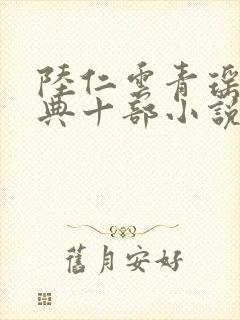 陸仁雲青瑶
典十部小說
舊月安好